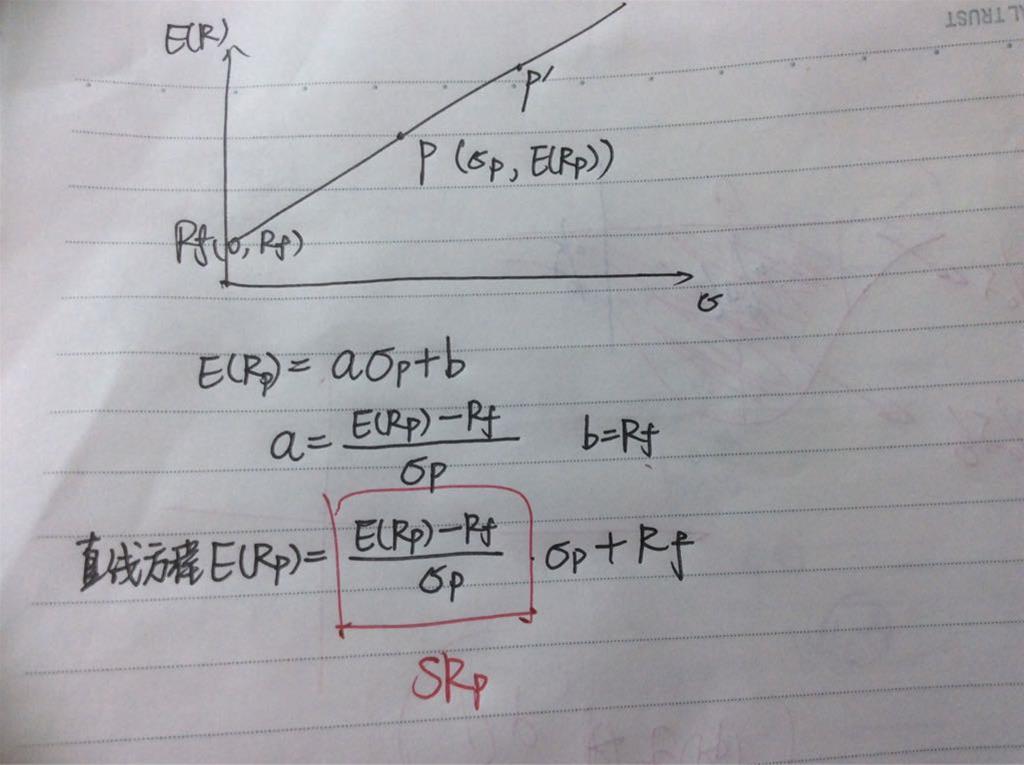 E(R)
P'
P (σp, E(Rp))
Rf(0, Rf)
σ
E(Rp) = aσp+b
a = \frac{E(Rp)-Rf}{σp} b=Rf
直线方程 E(Rp) = \frac{E(Rp)-Rf}{σp} · σp + Rf
SRp
AL TRUST